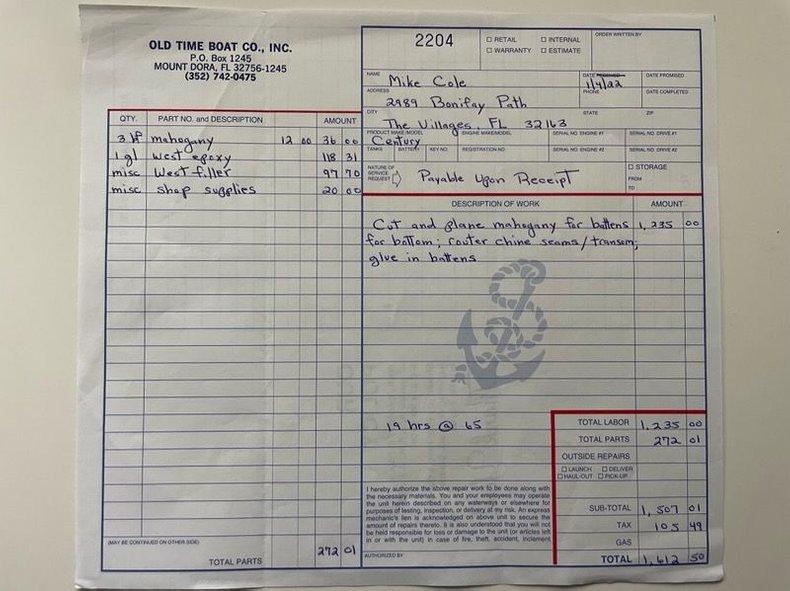 OLD TIME BOAT CO., INC.
P.O. Box 1245
MOUNT DORA, FL 32756-1245
(352) 742-0475
2204
☐ RETAIL ☐ INTERNAL
☐ WARRANTY ☐ ESTIMATE
ORDER WRITTEN BY
NAME Mike Cole
DATE 1/4/22
DATE PROMISED
ADDRESS 2989 Bonifay Path
PHONE
DATE COMPLETED
CITY The Villages, FL 32163
STATE ZIP
PRODUCT MAKE/MODEL Century
ENGINE MAKE/MODEL SERIAL NO. ENGINE #1 SERIAL NO. DRIVE #1
TANKS BATTERY KEY NO. REGISTRATION NO. SERIAL NO. ENGINE #2 SERIAL NO. DRIVE #2
NATURE OF SERVICE REQUEST Payable Upon Receipt
☐ STORAGE
FROM
TO
QTY. PART NO. and DESCRIPTION AMOUNT
3 lf mahogany 12 00 36 00
1 gl West epoxy 118 31
misc West filler 97 70
misc shop supplies 20 00
(MAY BE CONTINUED ON OTHER SIDE)
TOTAL PARTS 272 01
DESCRIPTION OF WORK AMOUNT
Cut and plane mahogany for battens 1,235 00
for bottom; router chine seams/transom;
glue in battens
19 hrs @ 65
I hereby authorize the above repair work to be done along with
the necessary materials. You and your employees may operate
the unit herein described on any waterways or elsewhere for
purposes of testing, inspection, or delivery at my risk. An express
mechanic's lien is acknowledged on above unit to secure the
amount of repairs thereto. It is also understood that you will not
be held responsible for loss or damage to the unit (or articles left
in or with the unit) in case of fire, theft, accident, inclement
AUTHORIZED BY
TOTAL LABOR 1,235 00
TOTAL PARTS 272 01
OUTSIDE REPAIRS
☐ LAUNCH ☐ DELIVER
☐ HAUL-OUT ☐ PICK-UP
SUB-TOTAL 1,507 01
TAX 105 49
GAS
TOTAL 1,612 50